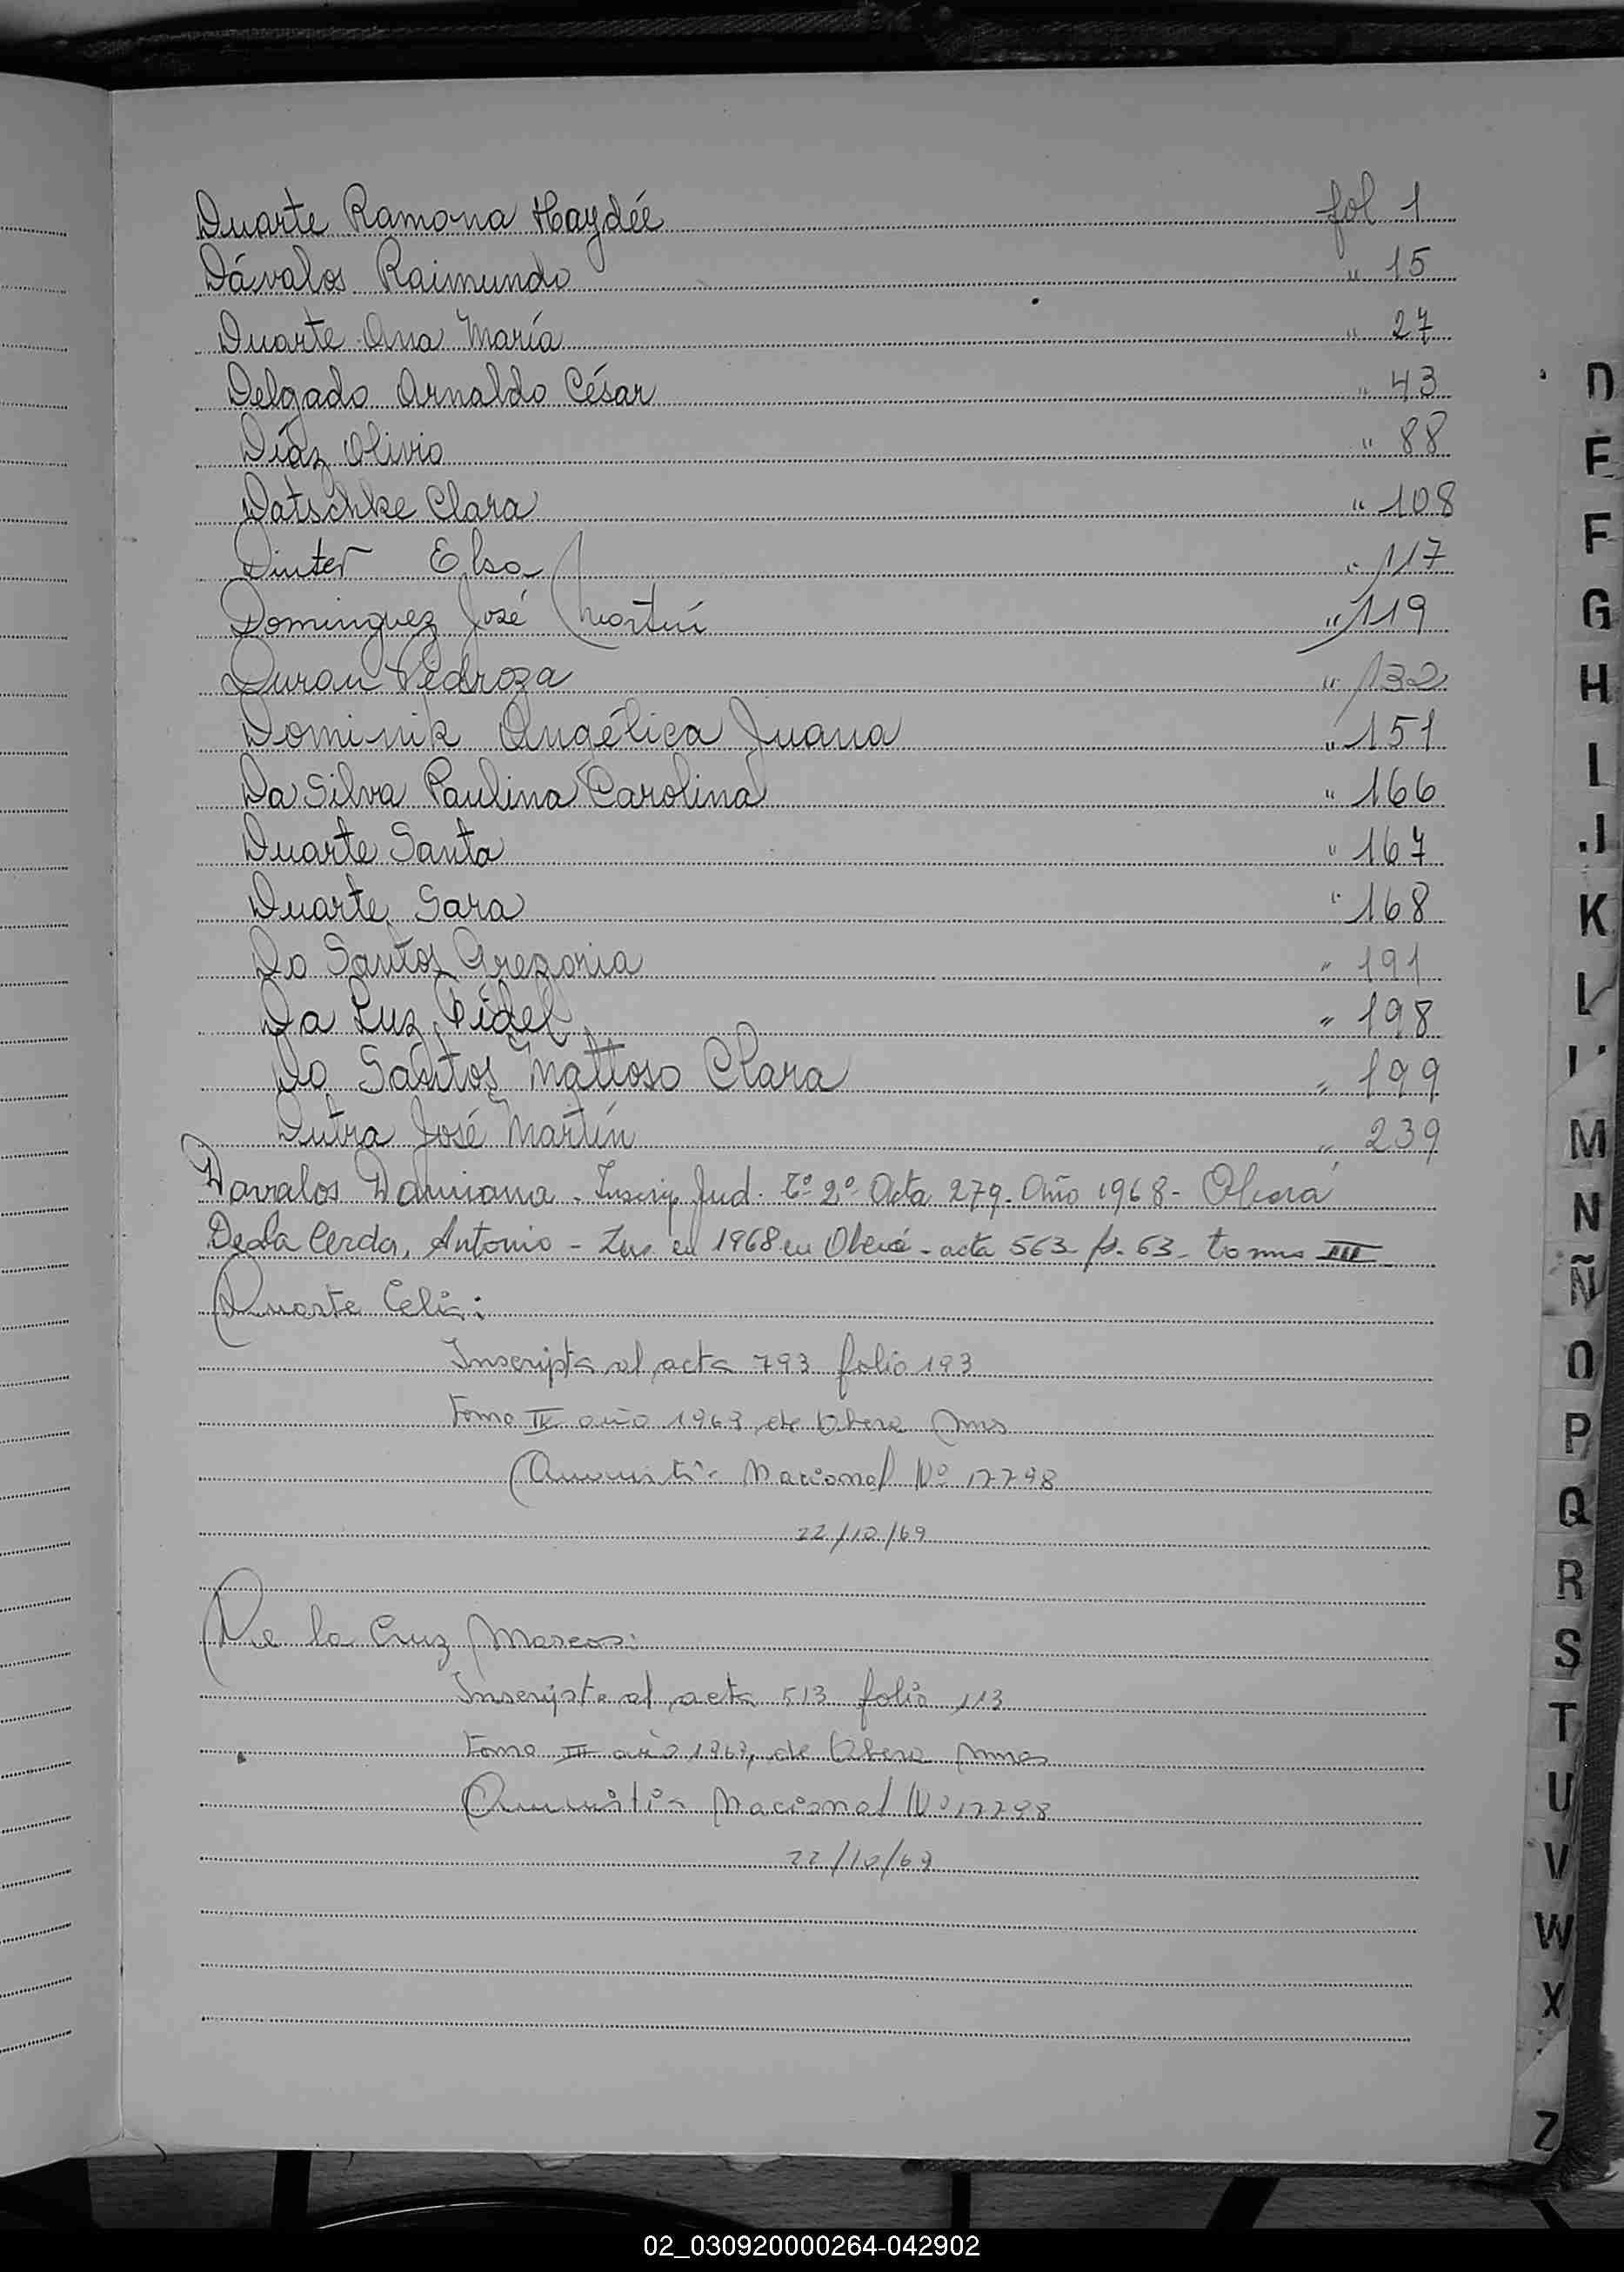 Duarte Ramona Haydée fol 1
Dávalos Raimundo " 15
Duarte Ana María " 27
Delgado Arnaldo César " 43
Díaz Olivio " 88
Datschke Clara " 108
Dinter Elsa " 117
Dominguez José Martín " 119
Duran Pedroza " 132
Dominik Angélica Juana " 151
Da Silva Paulina Carolina " 166
Duarte Santa " 167
Duarte Sara " 168
Do Santos Gregoria " 191
Da Luz Fidel " 198
Do Santos Mattoso Clara " 199
Dutra José Martín " 239
Davalos Damiana - Inscrip Jud. Tº 2º Acta 279. Año 1968 - Oberá
De La Cerda, Antonio - Ins en 1968 en Oberá - acta 563 - fº. 63 - tomo III
Duarte Celia:
Inscripta al acta 793 folio 193
tomo IV año 1969, de Obera Mnes
Amnistia Nacional Nº 17798
22/10/69
De la Cruz Marcos:
Inscripto al acta 513 folio 113
tomo III año 1969, de Obera Mnes
Amnistia Nacional Nº 17798
22/10/69
D
E
F
G
H
I
J
K
L
M
N
Ñ
O
P
Q
R
S
T
U
V
W
X
Z
02_030920000264-042902